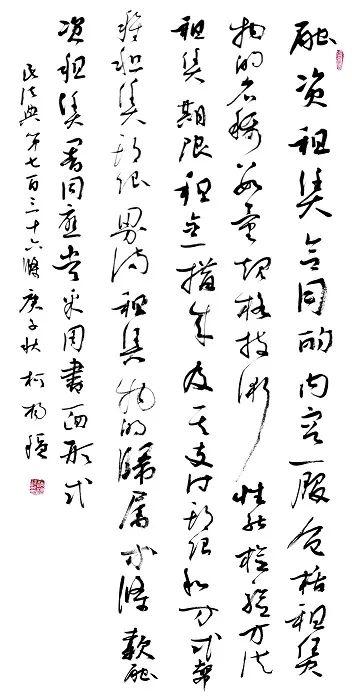 融资租赁合同的内容一般包括租赁
物的名称数量规格技术性能检验方法
租赁期限租金构成及其支付期限和方式币
种租赁期限届满租赁物的归属等条款融
资租赁合同应当采用书面形式
民法典第七百三十六条庚子秋柯杨